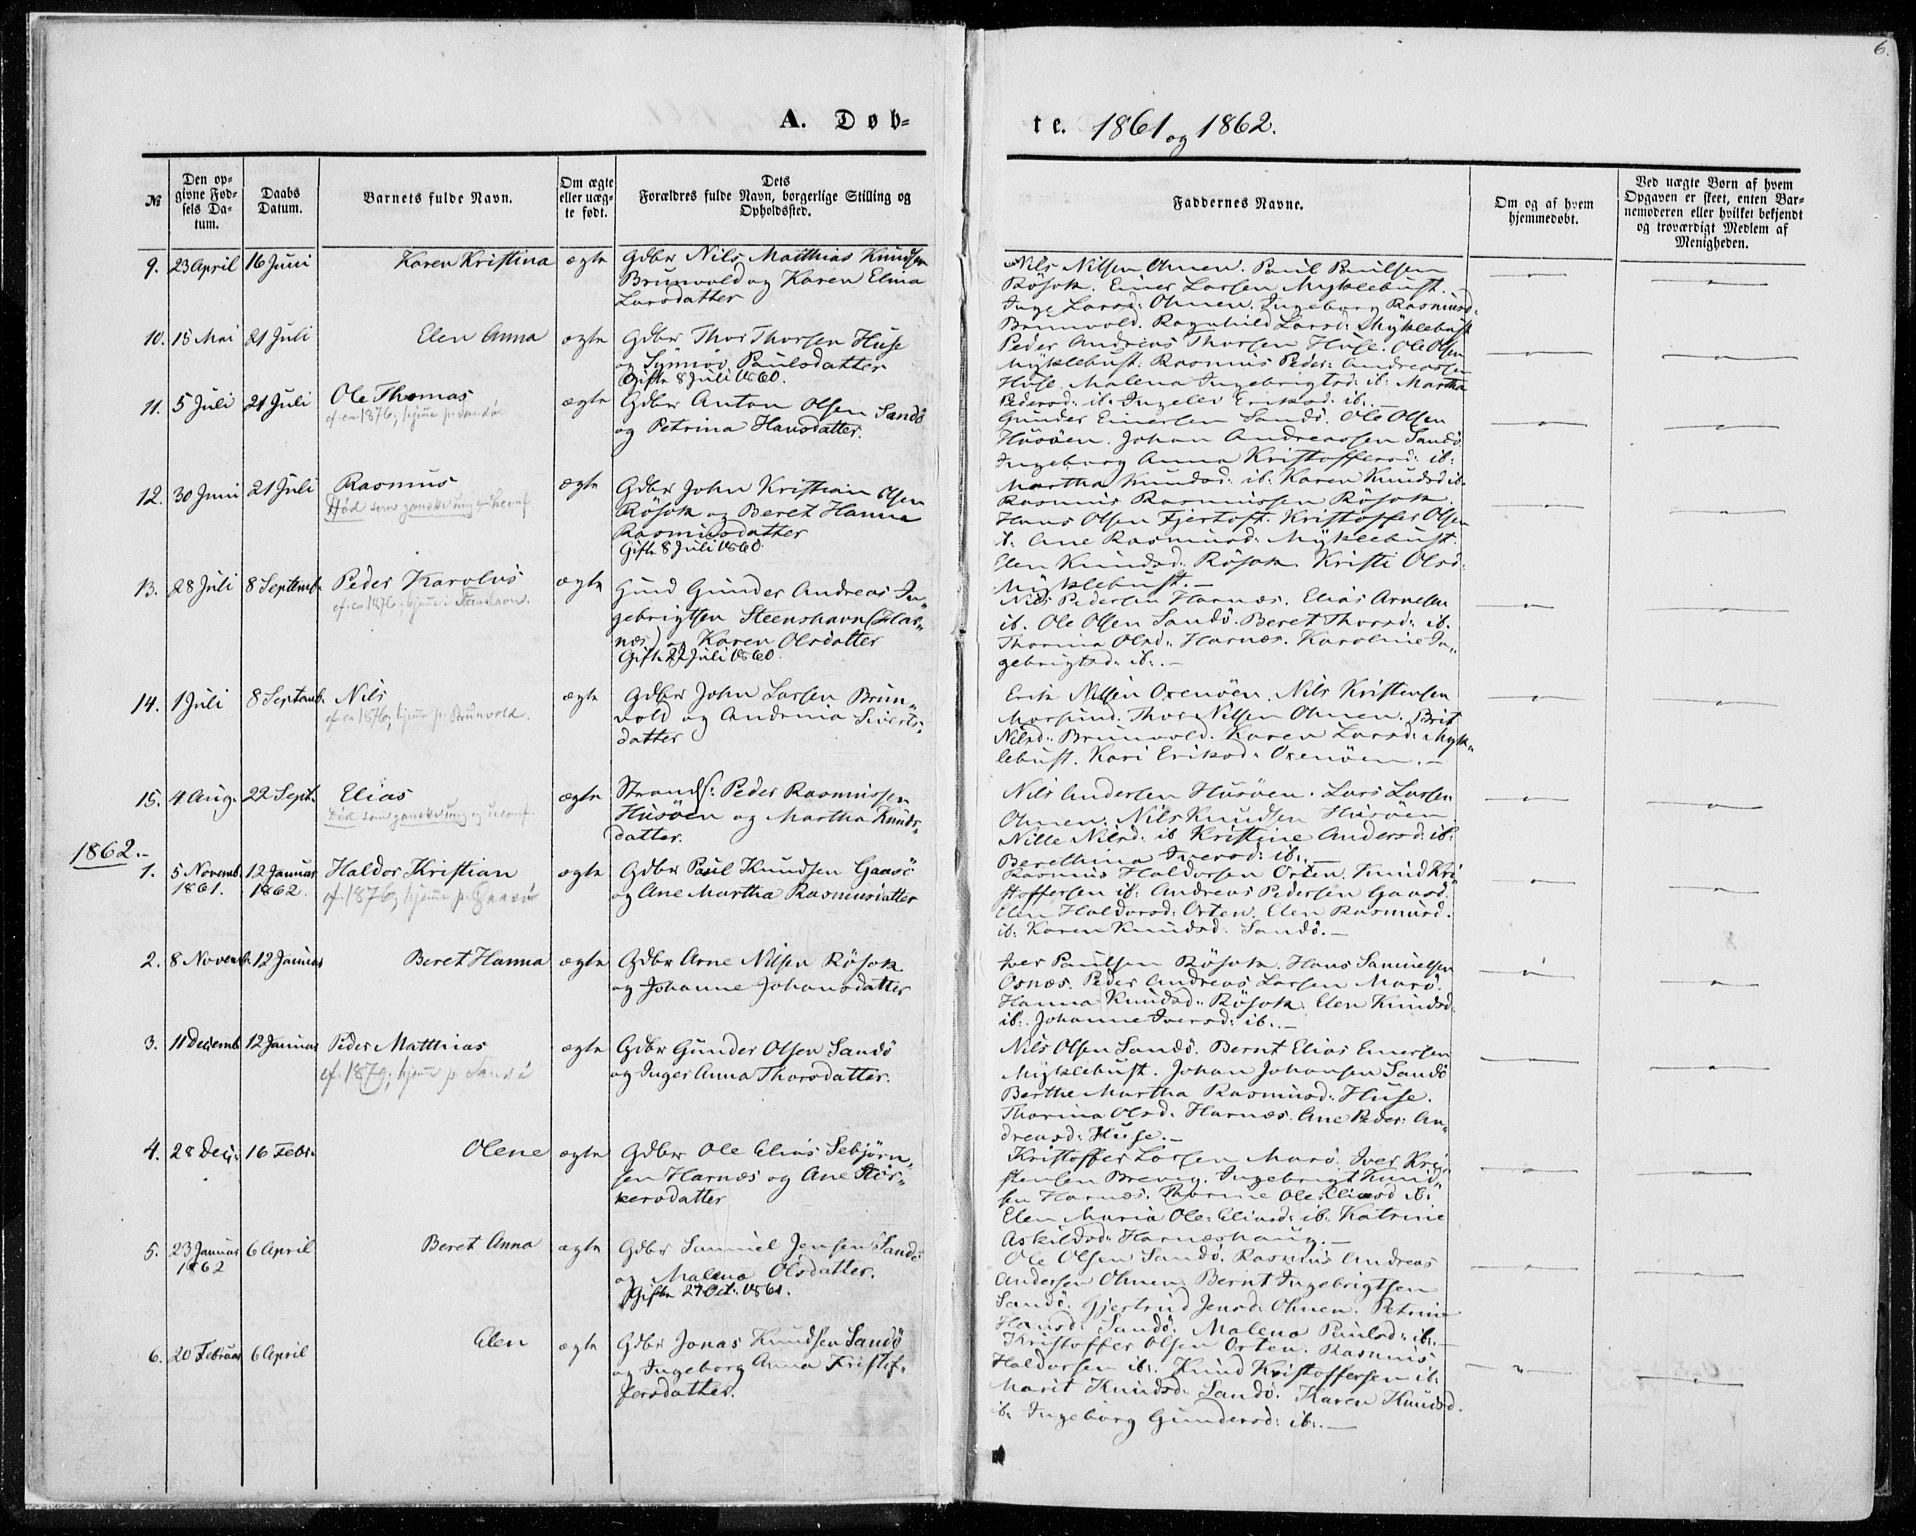 6.
A. Døb-
te. 1861 og 1862.
№
Den op-
givne Fød-
sels Da-
tum.
Daabs
Datum.
Barnets fulde Navn.
Om ægte
eller uæg-
te født.
Dets
Forældres fulde Navn, borgerlige Stilling og
Opholdssted.
Faddernes Navne.
Om og af hvem
hjemmedøbt.
Ved uægte Børn af hvem
Opgaven er skeet, enten Bar-
nemoderen eller hvilket bekjendt
og troværdigt Medlem af
Menigheden.
9. 23 April 16 Juni Karen Kristina ægte
Gdbr Nils Matthias Knudsen
Brunvold og Karen Elina
Larsdatter
Nils Nilsen Ohnen. Paul Paulsen
Rösok. Einer Larsen Myklebust.
Inge Larsd: Ohnen. Ingeborg Rasmusd:
Brunvold. Ragnhild Larsd: Myklebust
10. 15 Mai 21 Juli Elen Anna ægte
Gdbr Thor Thorsen Huse
og Synnöv Paulsdatter
Gifte 8 Juli 1860.
Peder Andreas Thorsen Huse. Ole Olsen
Myklebust. Rasmus Peder Andreassen
Huse. Malena Ingebrigtsd: ib: Martha
Pedersd: ib. Ingelev Eriksd: ib:.
11. 5 Juli 21 Juli Ole Thomas ægte
cf. en 1876; hjeme p. Sandö
Gdbr Anton Olsen Sandö
og Petrina Hansdatter.
Gunder Einersen Sandö. Ole Olsen
Husöen. Johan Andreassen Sandö
Ingeborg Anna Kristoffersd: ib:
Martha Knudsd: ib: Karen Knudsd ib.
12. 30 Juni 21 Juli Rasmus ægte
Död som ganske ung
Gdbr John Kristian Olsen
Rösok og Beret Hanna
Rasmusdatter
Gifte 8 Juli 1860.
Rasmus Rasmussen Rösok.
Hans Olsen Fjertoft. Kristoffer Olsen
ib. Ane Rasmusd: Myklebust.
Elen Knudsd: Rösok. Kristi Olsd:
Myklebust.
13. 28 Juli 8 Septemb. Peder Karolus ægte
cf. en 1876; hjeme i Steenshavn.
Gund Gunder Andreas In-
gebrigtsen Steenshavn (Har-
næs) og Karen Olsdatter
Gifte 27 Juli 1860.
Nils Pedersen Harnæs. Elias Arnesen
ib. Ole Olsen Sandö. Beret Thorsd: ib.
Thorina Olsd: Harnæs. Karoline In-
gebrigtsd: ib:.
14. 1 Juli 8 Septemb. Nils ægte
cf. en 1876; hjeme p. Brunvold.
Gdbr John Larsen Brun-
vold og Andrina Siverts-
datter
Erik Nilssen Oxenöen. Nils Kristensen
Morsund. Thor Nilsen Ohnen. Brit
Nilsd: Brunvold. Karen Larsd: Myk-
lebust. Kari Eriksd: Oxenöen.
15. 4 Aug. 22 Sept. Elias ægte
Död som ganske ung
Strands: Peder Rasmussen
Husöen og Martha Knuds-
datter.
Nils Andersen Husöen. Lars Larsen
Ohnen. Nils Knudsen Husöen.
Nille Nilsd: ib Kristine Andersd: ib:
Berethina Iversd: ib:.
1862.
1. 5 Novemb. 1861. 12 Januar 1862. Haldor Kristian ægte
cf. 1876; hjeme p. Gaasö
Gdbr Paul Knudsen Gaasö
og Ane Martha Rasmusdatter
Rasmus Haldorsen Orten. Knud Kri-
stoffersen ib: Andreas Pedersen Gaasö.
Elen Haldorsd: Orten. Elen Rasmusd.
ib: Karen Knudsd: Sandö.
2. 8 Novemb. 12 Januar Beret Hanna ægte
Gdbr Arne Nilsen Rösok
og Johanne Johansdatter
Iver Paulsen Rösok. Hans Samuelsen
Osnæs. Peder Andreas Larsen Marö.
Hanna Knudsd: Rösok. Elen Knudsd.
ib:. Johanne Iversd: ib:.
3. 11 Decemb. 12 Januar Peder Matthias ægte
cf. 1876; hjeme p. Sandö
Gdbr Gunder Olsen Sandö
og Inger Anna Thorsdatter.
Nils Olsen Sandö. Bernt Elias Einersen
Myklebust. Johan Johansen Sandö
Berthe Martha Rasmusd: Huse.
Thorina Olsd: Harnæs. Ane Peder An-
dreasd: Huse.
4. 28 Dec: 16 Febr. Olene ægte
Gdbr Ole Elias Sebjörn-
sen Harnæs og Ane Stör-
kersdatter
Kristoffer Larsen Marö. Iver Kri-
stensen Brevig. Ingebrigt Knud-
sen Harnæs. Thorine Ole Eliasd ib:
Elen Maria Ole Eliasd: ib. Katrine
Askildsd: Harnæshaug.
5. 23 Januar 1862 6 April Beret Anna ægte
Gdbr Samuel Jensen Sandö
og Malena Olsdatter.
Gifte 27 Oct. 1861.
Ole Olsen Sandö. Rasmus Andreas
Andersen Ohnen. Bernt Ingebrigtsen
Sandö. Gjertrud Jensd: Ohnen. Petrine
Hansd: Sandö. Malena Paulsd: ib:.
6. 20 Februar 6 April Elen ægte
Gdbr Jonas Knudsen Sandö
og Ingeborg Anna Kristof-
fersdatter.
Kristoffer Olsen Orten. Rasmus
Haldorsen ib:. Knud Kristoffersen ib:
Marit Knudsd: Sandö. Karen Knudsd.
ib: Ingeborg Gundersd: ib:.